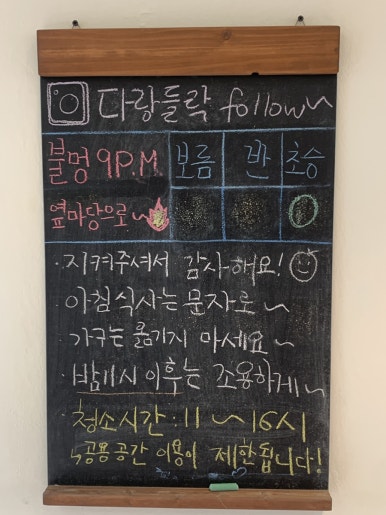 다랑들락 follow~
불멍 9P.M. 보름 반 초승
옆마당으로~
· 지켜주셔서 감사해요!
· 아침식사는 문자로~
· 가구는 옮기지 마세요~
· 밤 11시 이후는 조용하게~
· 청소시간 : 11~16시
↳ 공용공간 이용이 제한됩니다!